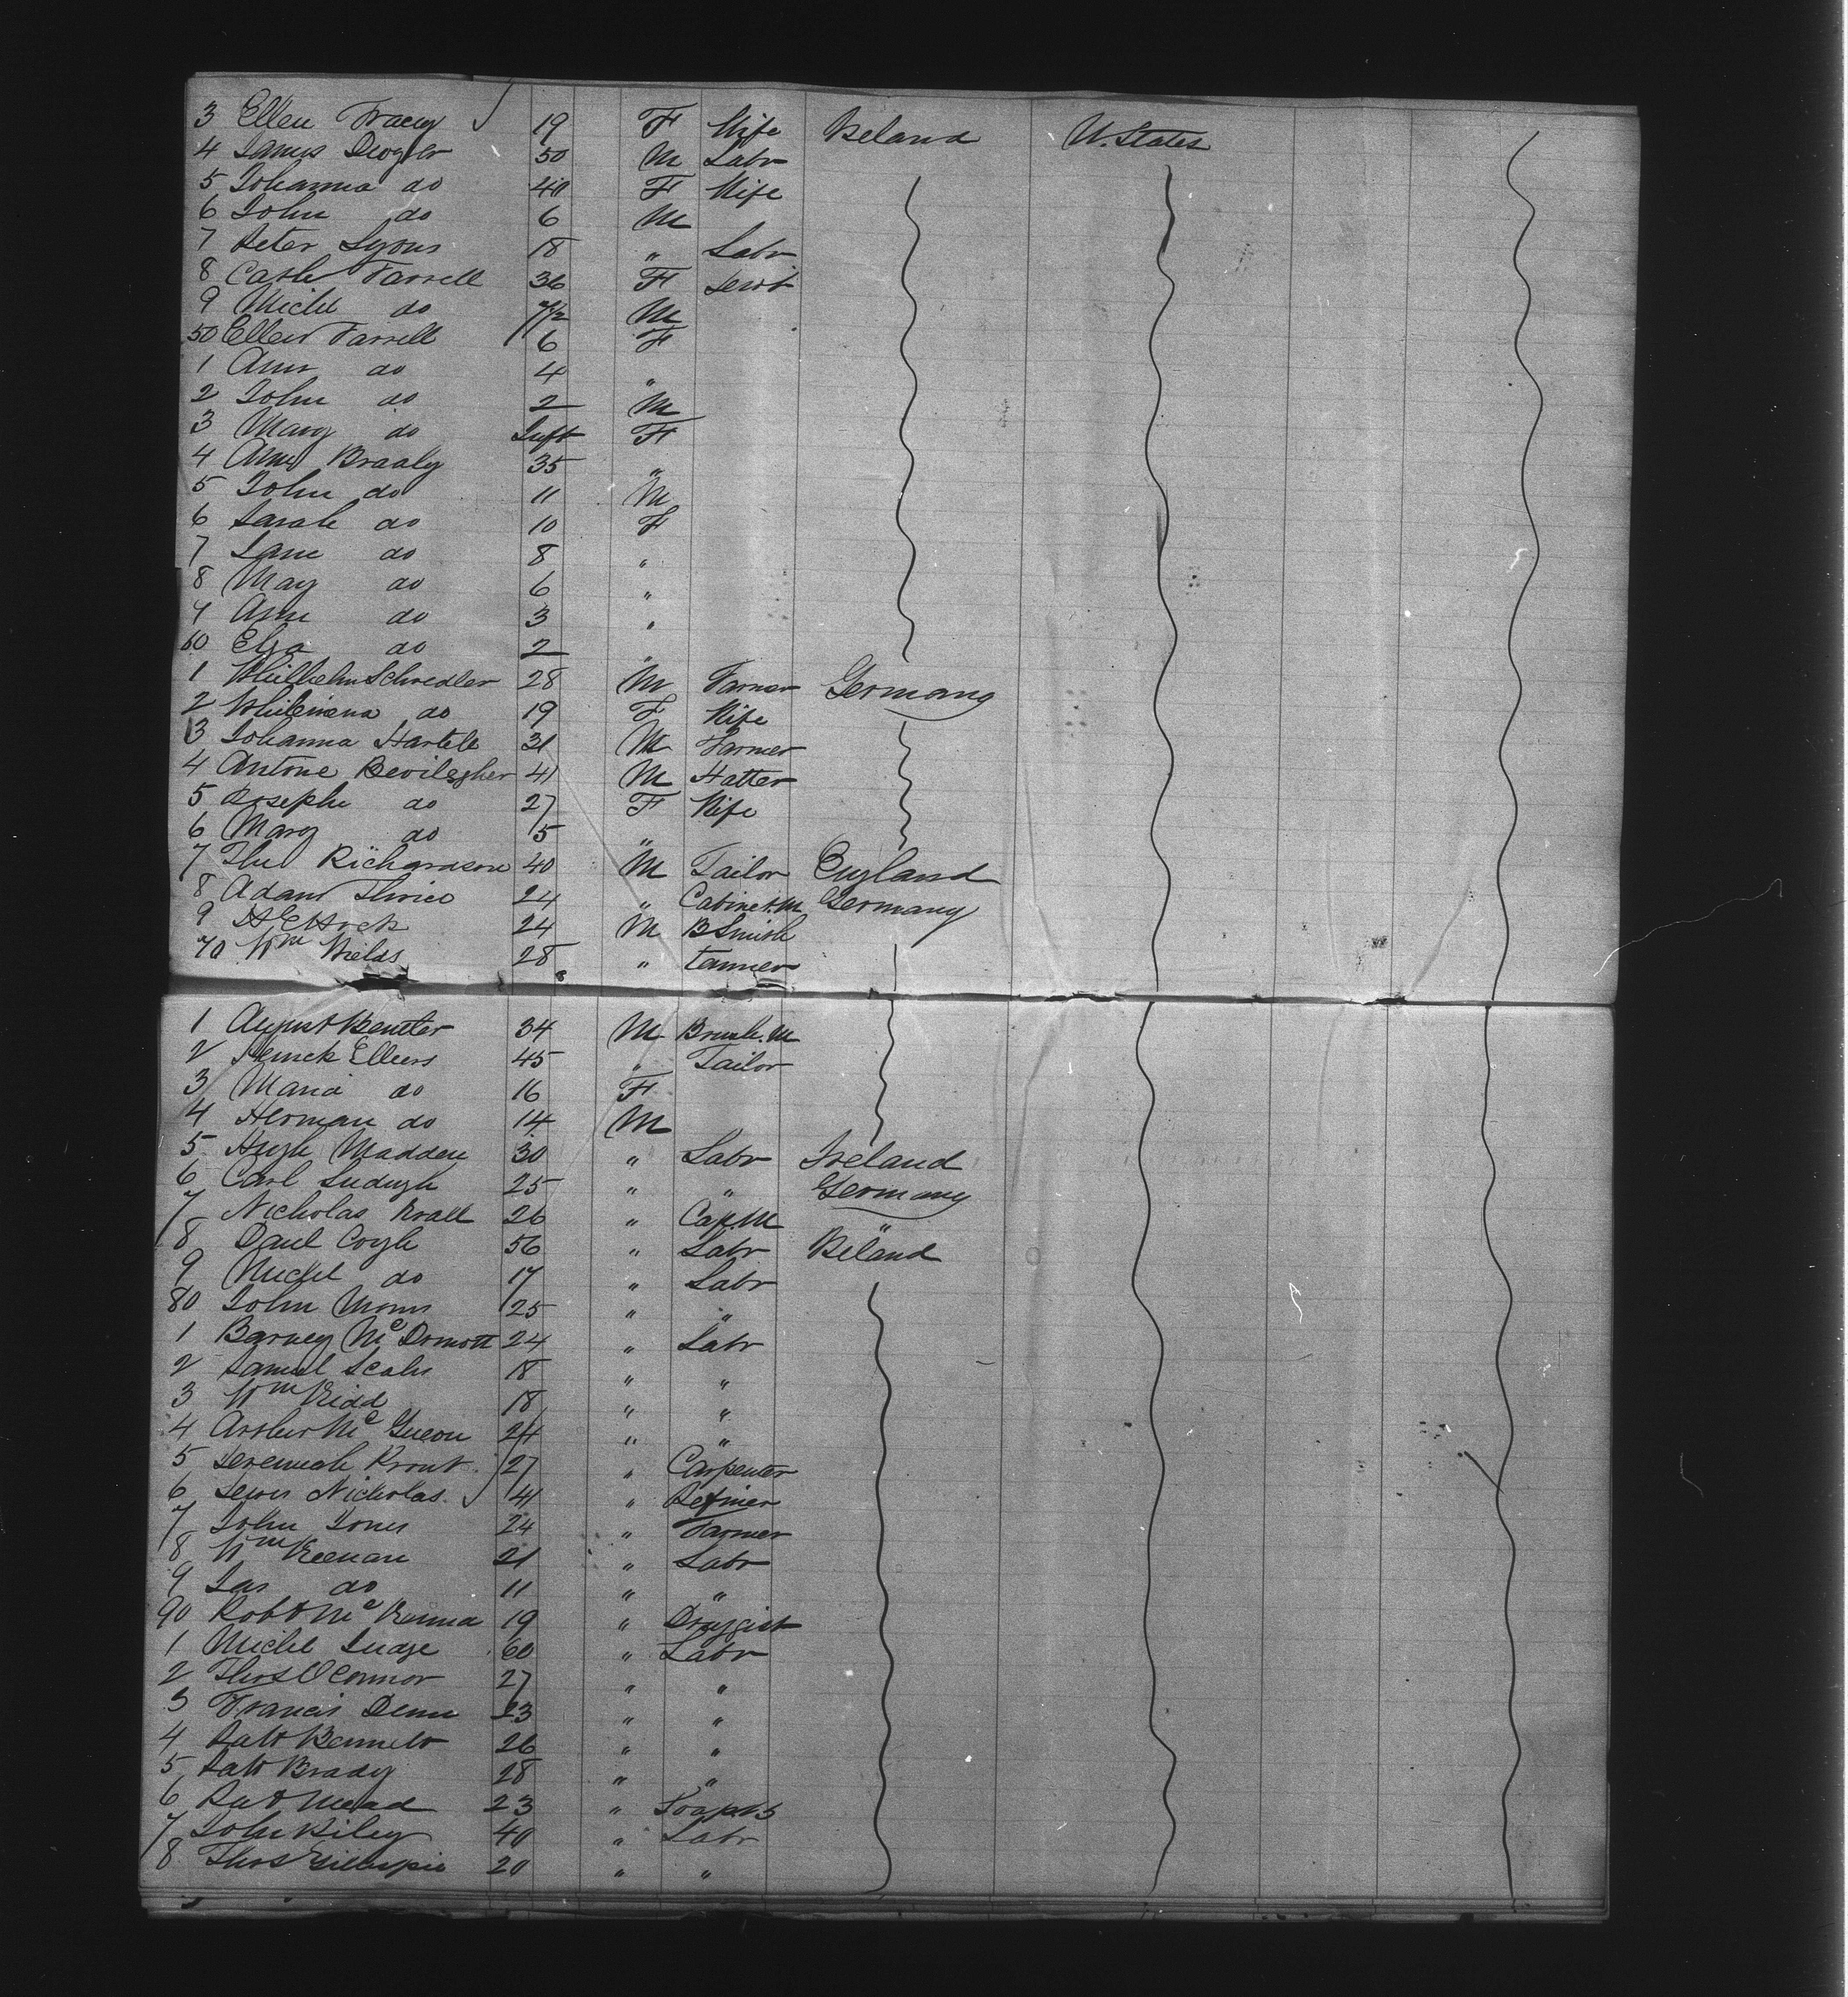 3 Ellen Tracey 19 F Wife Ireland U. States
4 James 50 M Labr
5 Johanna do 40 F Wife
6 John do 6 M
7 Peter Lyons 18 " Labr
8 Cath Farrell 36 F Servt
9 Michl do 7½ M
50 Ellen Farrell 6 F
1 Ann do 4 "
2 John do 2 M
3 Mary do Inft F
4 Ann Braaly 35 "
5 John do 11 M
6 Sarah do 10 F
7 Jane do 8 "
8 Mary do 6 "
9 Ann do 3 "
60 Eliza do 2 "
1 Whilhelm Schredler 28 M Farmer Germany
2 Whilimena do 19 F Wife
3 Johanna Hartele 31 M Farmer
4 Antone 41 M Hatter
5 Josephe do 27 F Wife
6 Mary do 5 "
7 Richardson 40 M Tailor England
8 Adam 24 " Cabinet.M Germany
9 24 M B Smith
70 Wm Wields 28 " tanner
1 August Beutler 34 M Brush.M
2 Heinck Ellers 45 " Tailor
3 Maria do 16 F
4 Herman do 14 M
5 Hugh Madden 30 " Labr Ireland
6 Carl Ludwgh 25 " " Germany
7 Nicholas Krall 26 " Cap.M "
8 Danl Coyle 56 " Labr Ireland
9 Michl do 17 " Labr
80 John Morris 25 " "
1 Barney McDrmott 24 " Labr
2 Samuel 18 " "
3 Wm Kidd 18 " "
4 Arthur Mc 24 " "
5 Jeremiah Kront 27 " Carpenter
6 Lewis Nicholas 41 " Refiner
7 John Jones 24 " Farmer
8 Wm Keenan 21 " Labr
9 Jas do 11 " "
90 Robt McKenna 19 " Druggist
1 Michl Judge 60 " Labr
2 Thos OConnor 27 " "
3 Francis Dunn 23 " "
4 Patt Bennett 26 " "
5 Patt Brady 28 " "
6 Pat Mead 23 "
7 John Riley 40 " Labr
8 Thos Gillespie 20 " "